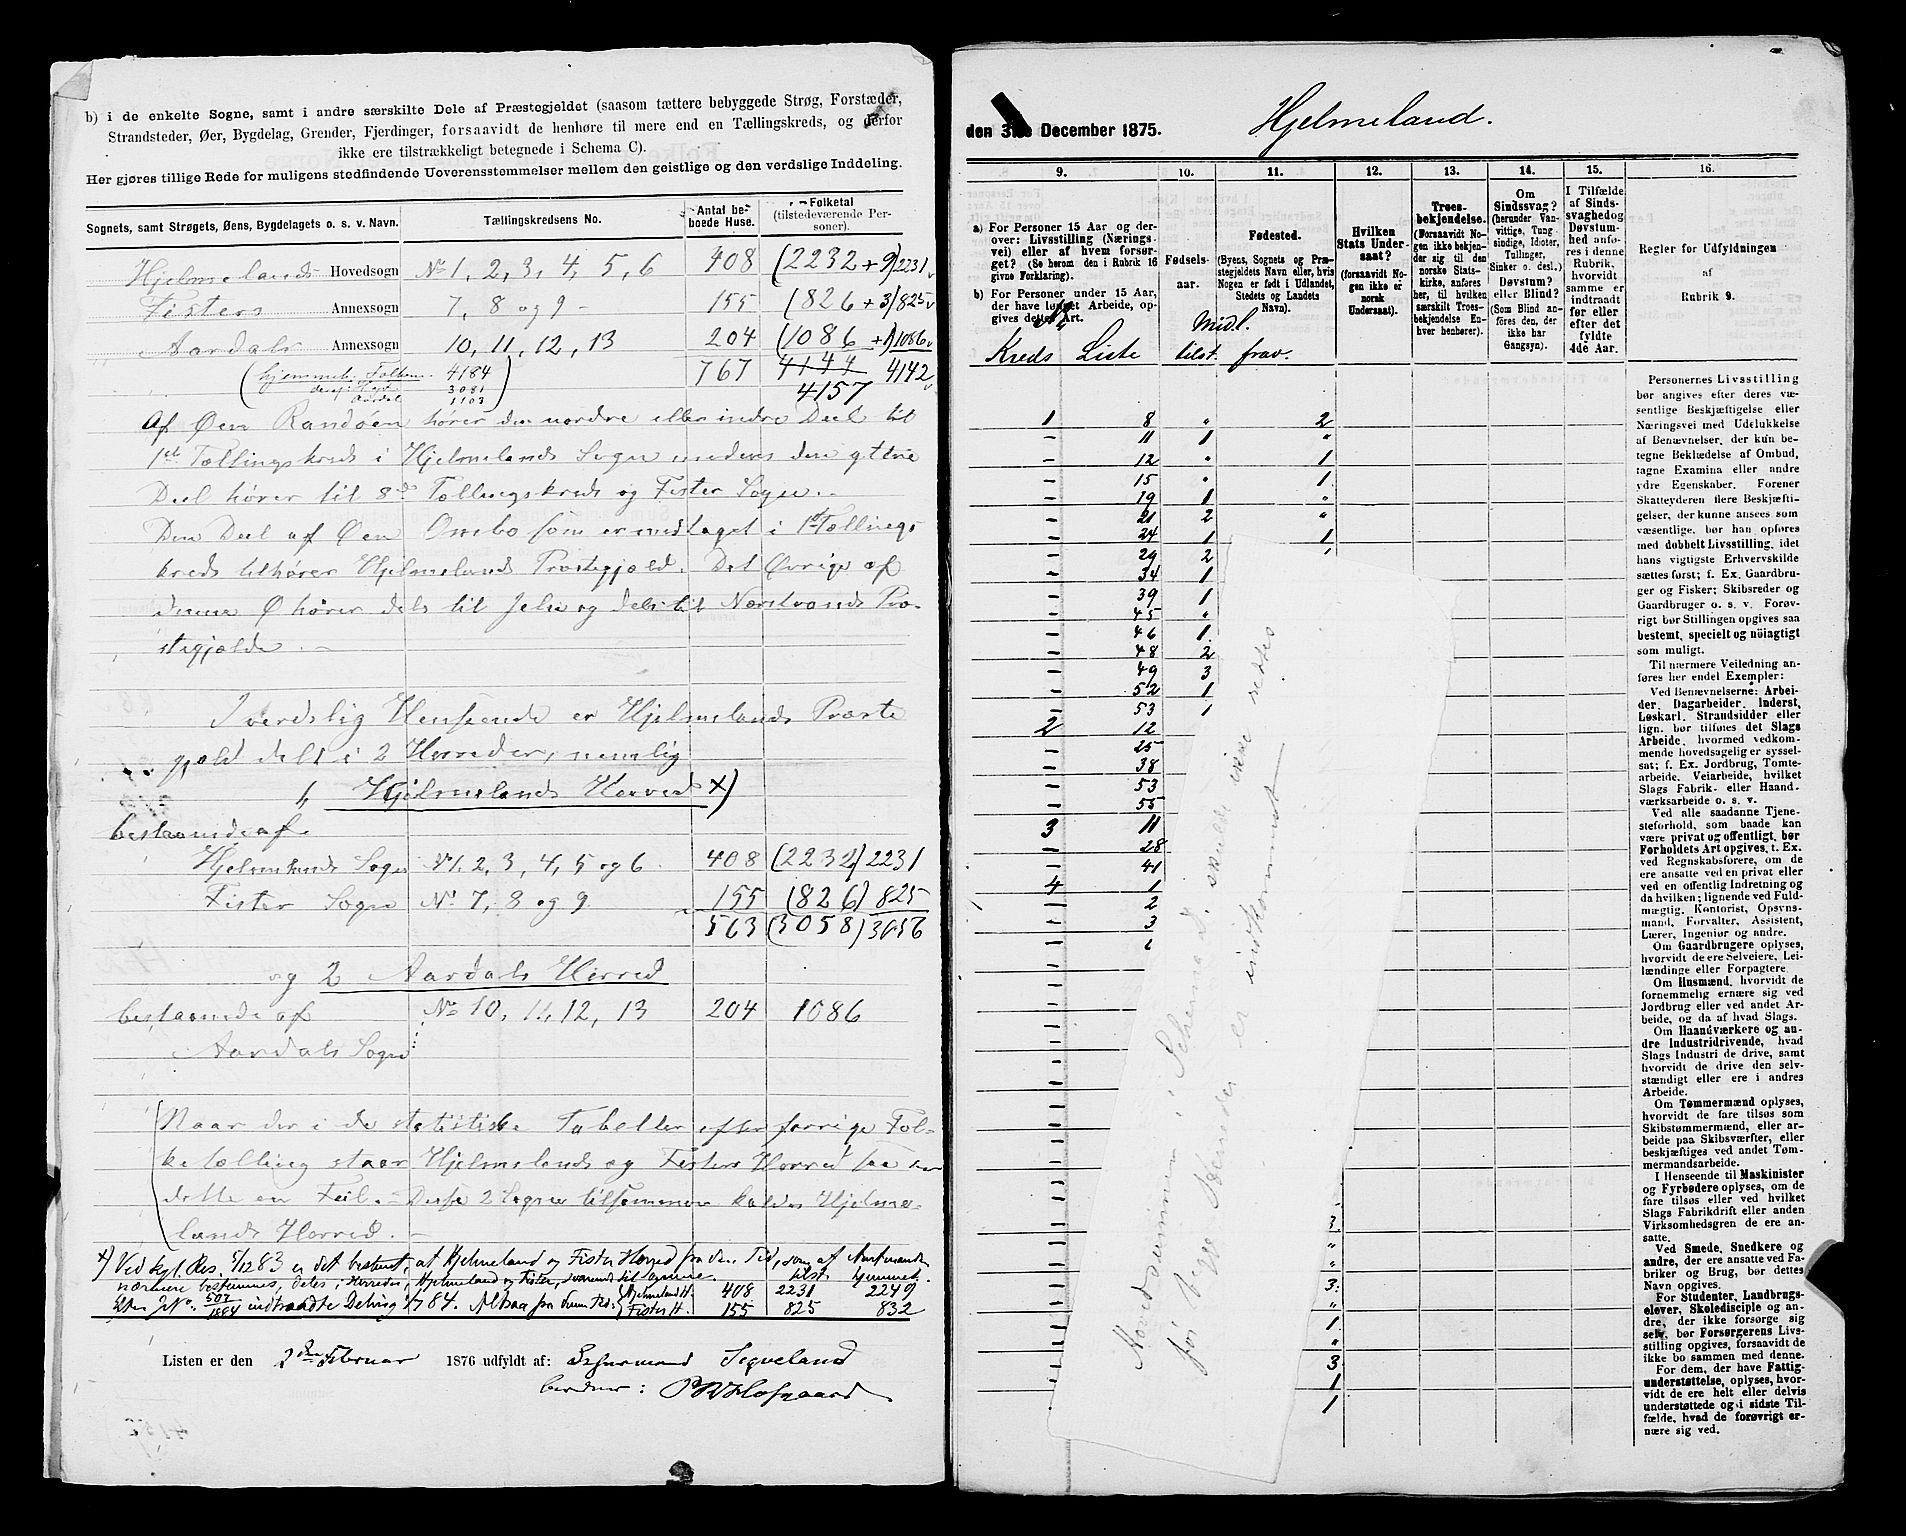 b) i de enkelte Sogne, samt i andre særskilte Dele af Præstegjeldet (saasom tættere bebyggede Strøg, Forstæder,
Strandsteder, Øer, Bygdelag, Grender, Fjerdinger, forsaavidt de henhøre til mere end en Tællingskreds, og derfor
ikke ere tilstrækkeligt betegnede i Schema C).
Her gjøres tillige Rede for muligens stedfindende Uoverensstemmelser mellem den geistlige og den verdslige Inddeling.
Sognets, samt Strøgets, Øens, Bygdelagets o. s. v. Navn. Tællingskredsens No. Antal beboede Huse. Folketal (tilstedeværende Personer).
Hjelmelands Hovedsogn No 1, 2, 3, 4, 5, 6 408 (2232 + 9) 2231
Fisters Annexsogn 7, 8 og 9 155 (826 + 3) 825
Aardals Annexsogn 10, 11, 12, 13 204 (1086 + 1) 1086
(hjemmeh. Folkem. 4184) 767 4144 4142
3081
Aardal 1103 4157
Af Øen Randøen hører den nordre eller indre Deel til
1ste Tællingskreds i Hjelmelands Sogn medens den yttre
Deel hører til 8de Tællingskreds og Fister Sogn.
Den Deel af Øen Ombo som er medtaget i 1ste Tællings
kreds tilhører Hjelmelands Præstegjæld. Det Øvrige af
denne Ø hører dels til Jelse og dels til Nærstrands Præ-
stegjælde.
I verdslig Henseende er Hjelmelands Præste
gjæld delt i 2 Herreder, nemlig
1, Hjelmelands Herred x)
bestaaende af
Hjelmelands Sogn No 1, 2, 3, 4, 5 og 6 408 (2232) 2231
Fister Sogn No 7, 8 og 9 155 (826) 825
563 (3058) 3056
og 2 Aardals Herred
bestaaende af No 10, 11, 12, 13 204 1086
Aardals Sogn
(Naar der i de statistiske Tabeller efter forrige Fol-
ketælling staar Hjelmelands og Fisters Herred saa er
dette en Feil. Disse 2 Sogne tilsammen kaldes Hjelme-
lands Herred.
x) Ved kgl. Res. 5/12 83 er det bestemt, at Hjelmeland og Fister Herred fra den Tid, som af Amtmanden
nærmere bestemmes, deles i Herreder, Hjelmeland og Fister, svarende til Sognene. tilst. hjemmeh.
507/1884 indtraadte Deling 1/7 84. Altsaa fra denne Tid: Hjelmeland H. 408 2231 2249
Fister H. 155 825 832
Listen er den 2den Februar 1876 udfyldt af: Lensmand Segveland
P W Hofgaard
den 31te December 1875. Hjelmeland.
9. 10. 11. 12. 13. 14. 15. 16.
a) For Personer 15 Aar og derover: Livsstilling (Næringsvei) eller af hvem forsørget? (Se herom den i Rubrik 16 givne Forklaring).
b) For Personer under 15 Aar, der have lønnet Arbeide, opgives dettes Art.
Fødselsaar.
Fødested. (Byens, Sognets og Præstegjeldets Navn eller, hvis Nogen er født i Udlandet, Stedets og Landets Navn).
Hvilken Stats Undersaat? (forsaavidt Nogen ikke er norsk Undersaat).
Troesbekjendelse. (Forsaavidt Nogen ikke bekjender sig til den norske Statskirke, anføres her, til hvilken særskilt Troesbekjendelse Enhver henhører).
Om Sindssvag? (herunder Vanvittige, Tungsindige, Idioter, Tullinger, Sinker o. desl.). Døvstum? eller Blind? (Som Blind anføres den, der ikke har Gangsyn).
I Tilfælde af Sindssvaghed og Døvstumhed anføres i denne Rubrik, hvorvidt samme er indtraadt før eller efter det fyldte 4de Aar.
Regler for Udfyldningen
af
Rubrik 9.
Midl.
Kreds Liste tilst. frav.
1 8 " 2
– 11 1 "
– 12 " 1
– 15 " 1
– 19 1 "
– 21 2 "
– 24 1 1
– 29 2
– 34 1
– 39 1
– 45 "
– 46 1
– 48 2
– 49 3
– 52 1
– 53 1
2 12
– 25
– 38
– 53
– 55
3 11
– 28
– 41
4 1
– 2
– 3
3
"
"
3
"
1
"
3
1
1
Hovedsummen i Schema D. skulde ikke rettes
før begge Sedler er indkommet
Personernes Livsstilling
bør angives efter deres væ-
sentlige Beskjæftigelse eller
Næringsvei med Udelukkelse
af Benævnelser, der kun be-
tegne Beklædelse af Ombud,
tagne Examina eller andre
ydre Egenskaber. Forener
Skatteyderen flere Beskjæfti-
gelser, der kunne ansees som
væsentlige, bør han opføres
med dobbelt Livsstilling, idet
hans vigtigste Erhvervskilde
sættes først; f. Ex. Gaardbru-
ger og Fisker; Skibsreder og
Gaardbruger o. s. v. Forøv-
rigt bør Stillingen opgives saa
bestemt, specielt og nøiagtigt
som muligt.
Til nærmere Veiledning an-
føres her endel Exempler:
Ved Benævnelserne: Arbei-
der, Dagarbeider, Inderst,
Løskarl, Strandsidder eller
lign. bør tilføres det Slags
Arbeide, hvormed vedkom-
mende hovedsagelig er syssel-
sat; f. Ex. Jordbrug, Tomte-
arbeide, Veiarbeide, hvilket
Slags Fabrik- eller Haand-
værksarbeide o. s. v.
Ved alle saadanne Tjene-
steforhold, som baade kan
være privat og offentligt, bør
Forholdets Art opgives, t. Ex.
ved Regnskabsførere, om de
ere ansatte ved en privat eller
ved en offentlig Indretning og
da hvilken; lignende ved Fuld-
mægtig, Kontorist, Opsyns-
mand, Forvalter, Assistent,
Lærer, Ingeniør og andre.
Om Gaardbrugere oplyses,
hvorvidt de ere Selveiere, Lei-
lændinge eller Forpagtere.
Om Husmænd, hvorvidt de
fornemmelig ernære sig ved
Jordbrug eller ved andet Ar-
beide, og da af hvad Slags.
Om Haandværkere og an-
dre Industridrivende, hvad
Slags Industri de drive, samt
hvorvidt de drive den selv-
stændigt eller ere i andres
Arbeide.
Om Tømmermænd oplyses,
hvorvidt de fare tilsøs som
Skibstømmermænd, eller ar-
beide paa Skibsværfter, eller
beskjæftiges ved andet Tøm-
mermandsarbeide.
I Henseende til Maskinister
og Fyrbødere oplyses, om de
fare tilsøs eller ved hvilket
Slags Fabrikdrift eller anden
Virksomhedsgren de ere an-
satte.
Ved Smede, Snedkere og
andre, der ere ansatte ved Fa-
briker og Brug, bør dettes
Navn opgives.
For Studenter, Landbrugs-
elever, Skoledisciple og an-
dre, der ikke forsørge sig
selv, bør Forsørgerens Livs-
stilling opgives, forsaavidt de
ikke bo sammen med denne.
For dem, der have Fattig-
understøttelse, oplyses, hvor-
vidt de ere helt eller delvis
understøttede og i sidste Til-
fælde, hvad de forøvrigt er-
nære sig ved.